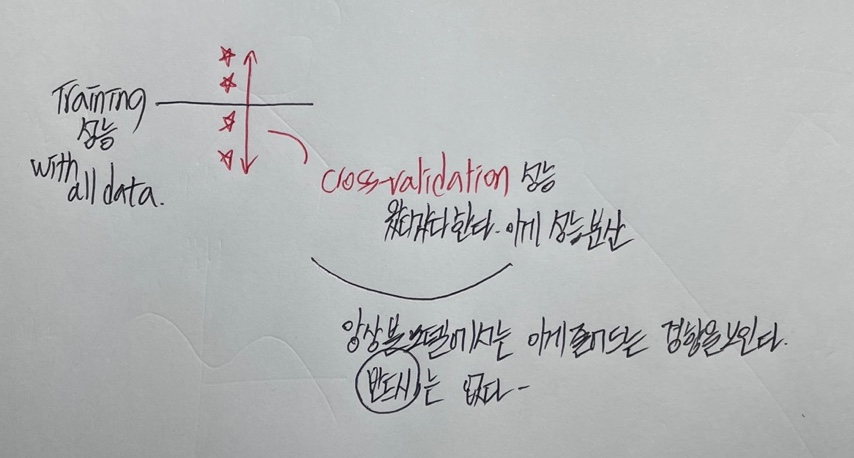 Training
성능
with
all data.
cross-validation 성능
왔다갔다 한다. 이게 성능 분산
앙상블 모델에서는 이게 줄어드는 경향을 보인다.
반드시는 없다-